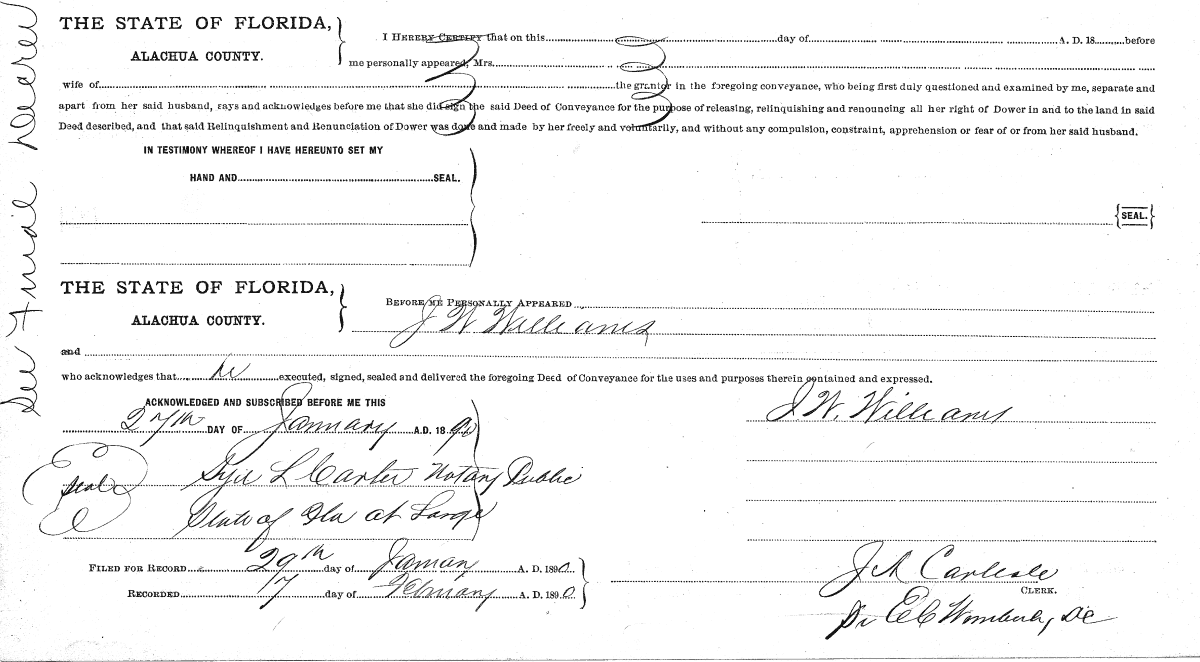 THE STATE OF FLORIDA,
ALACHUA COUNTY.
I HEREBY CERTIFY that on this day of A. D. 18 before
me personally appeared, Mrs.
wife of the grantor in the foregoing conveyance, who being first duly questioned and examined by me, separate and
apart from her said husband, says and acknowledges before me that she did sign the said Deed of Conveyance for the purpose of releasing, relinquishing and renouncing all her right of Dower in and to the land in said
Deed described, and that said Relinquishment and Renunciation of Dower was done and made by her freely and voluntarily, and without any compulsion, constraint, apprehension or fear of or from her said husband.
IN TESTIMONY WHEREOF I HAVE HEREUNTO SET MY
HAND AND SEAL.
SEAL.
THE STATE OF FLORIDA,
ALACHUA COUNTY.
BEFORE ME PERSONALLY APPEARED
J W Williams
and
who acknowledges that he executed, signed, sealed and delivered the foregoing Deed of Conveyance for the uses and purposes therein contained and expressed.
ACKNOWLEDGED AND SUBSCRIBED BEFORE ME THIS
27th DAY OF January A.D. 18 90
J W. Williams
seal
L Carter Notary Public
State of Fla at Large
FILED FOR RECORD 29th day of January A. D. 1890
RECORDED 17 day of February A. D. 1890
J A Carlisle
CLERK.
E C DC
See